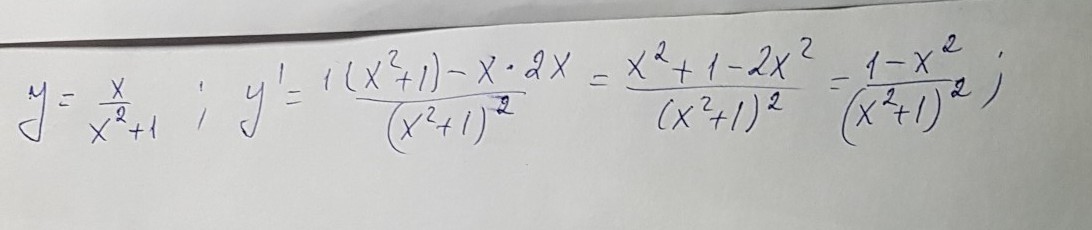 y = x/(x²+1) ; y' = (1(x²+1) - x·2x)/(x²+1)² = (x²+1-2x²)/(x²+1)² = (1-x²)/(x²+1)² ;